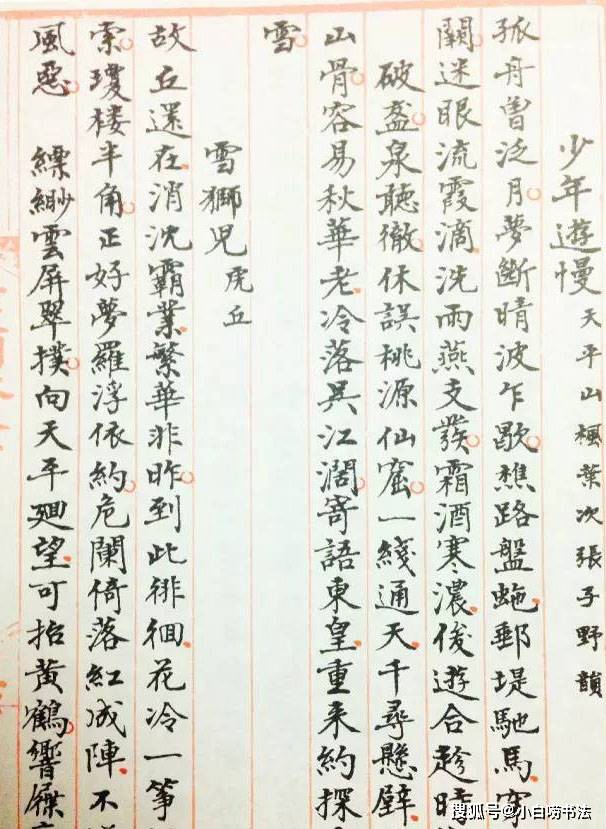 少年遊慢 天平山楓葉次張子野韻
孤舟曾泛月夢斷晴波乍歇樵路盤虵郵堤馳馬穿
闕迷眼流霞滴洗雨燕支發霜酒寒濃後遊合趁時
破盔泉聽徹休誤桃源仙窟一綫通天千尋懸壁
山骨容易秋華老冷落吳江闊寄語東皇重来約探
雪
雪獅兒 虎丘
故丘還在消沈霸業繁華非昨到此徘徊花冷一箏
索瓊楼半角正好夢羅浮依約危闌倚落紅成陣不
風惡 縹緲雲屏翠撲向天平迴望可招黃鶴響屧
搜狐号@小白唠书法